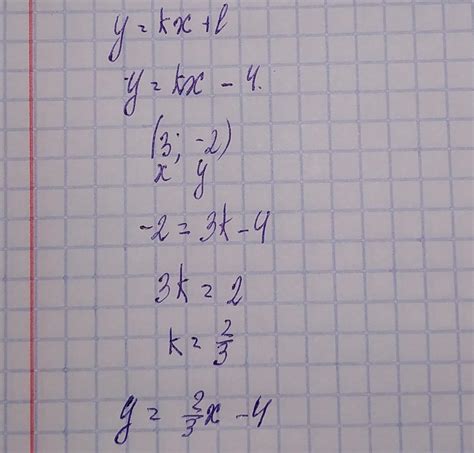 y = kx + l
y = kx - 4.
(3; -2)
x y
-2 = 3k - 4
3k = 2
k = 2/3
y = 2/3 x - 4